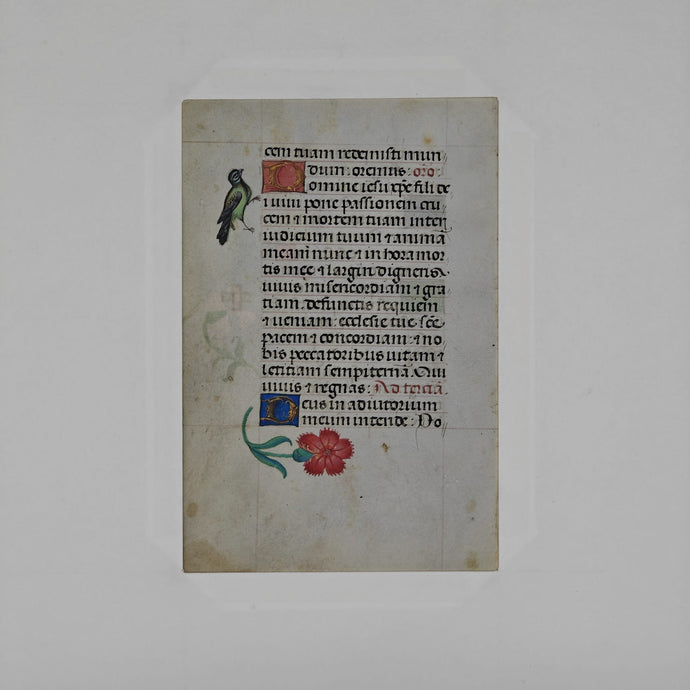 cem tuam redemisti mun
dum: oremus: oro
Domine iesu xpe fili de
i uiui pone passionem cru
cem & mortem tuam inter
iudicium tuum & animā
meam nunc & in hora mor
tis mee & largiri digneris
uiuis misericordiam & gra
tiam defunctis requiem
& ueniam: ecclesie tue scē
pacem & concordiam: & no
bis peccatoribus uitam &
letitiam sempiternā. Qui
uiuis & regnas: Ad terciā.
Deus in adiutorium
meum intende: Do